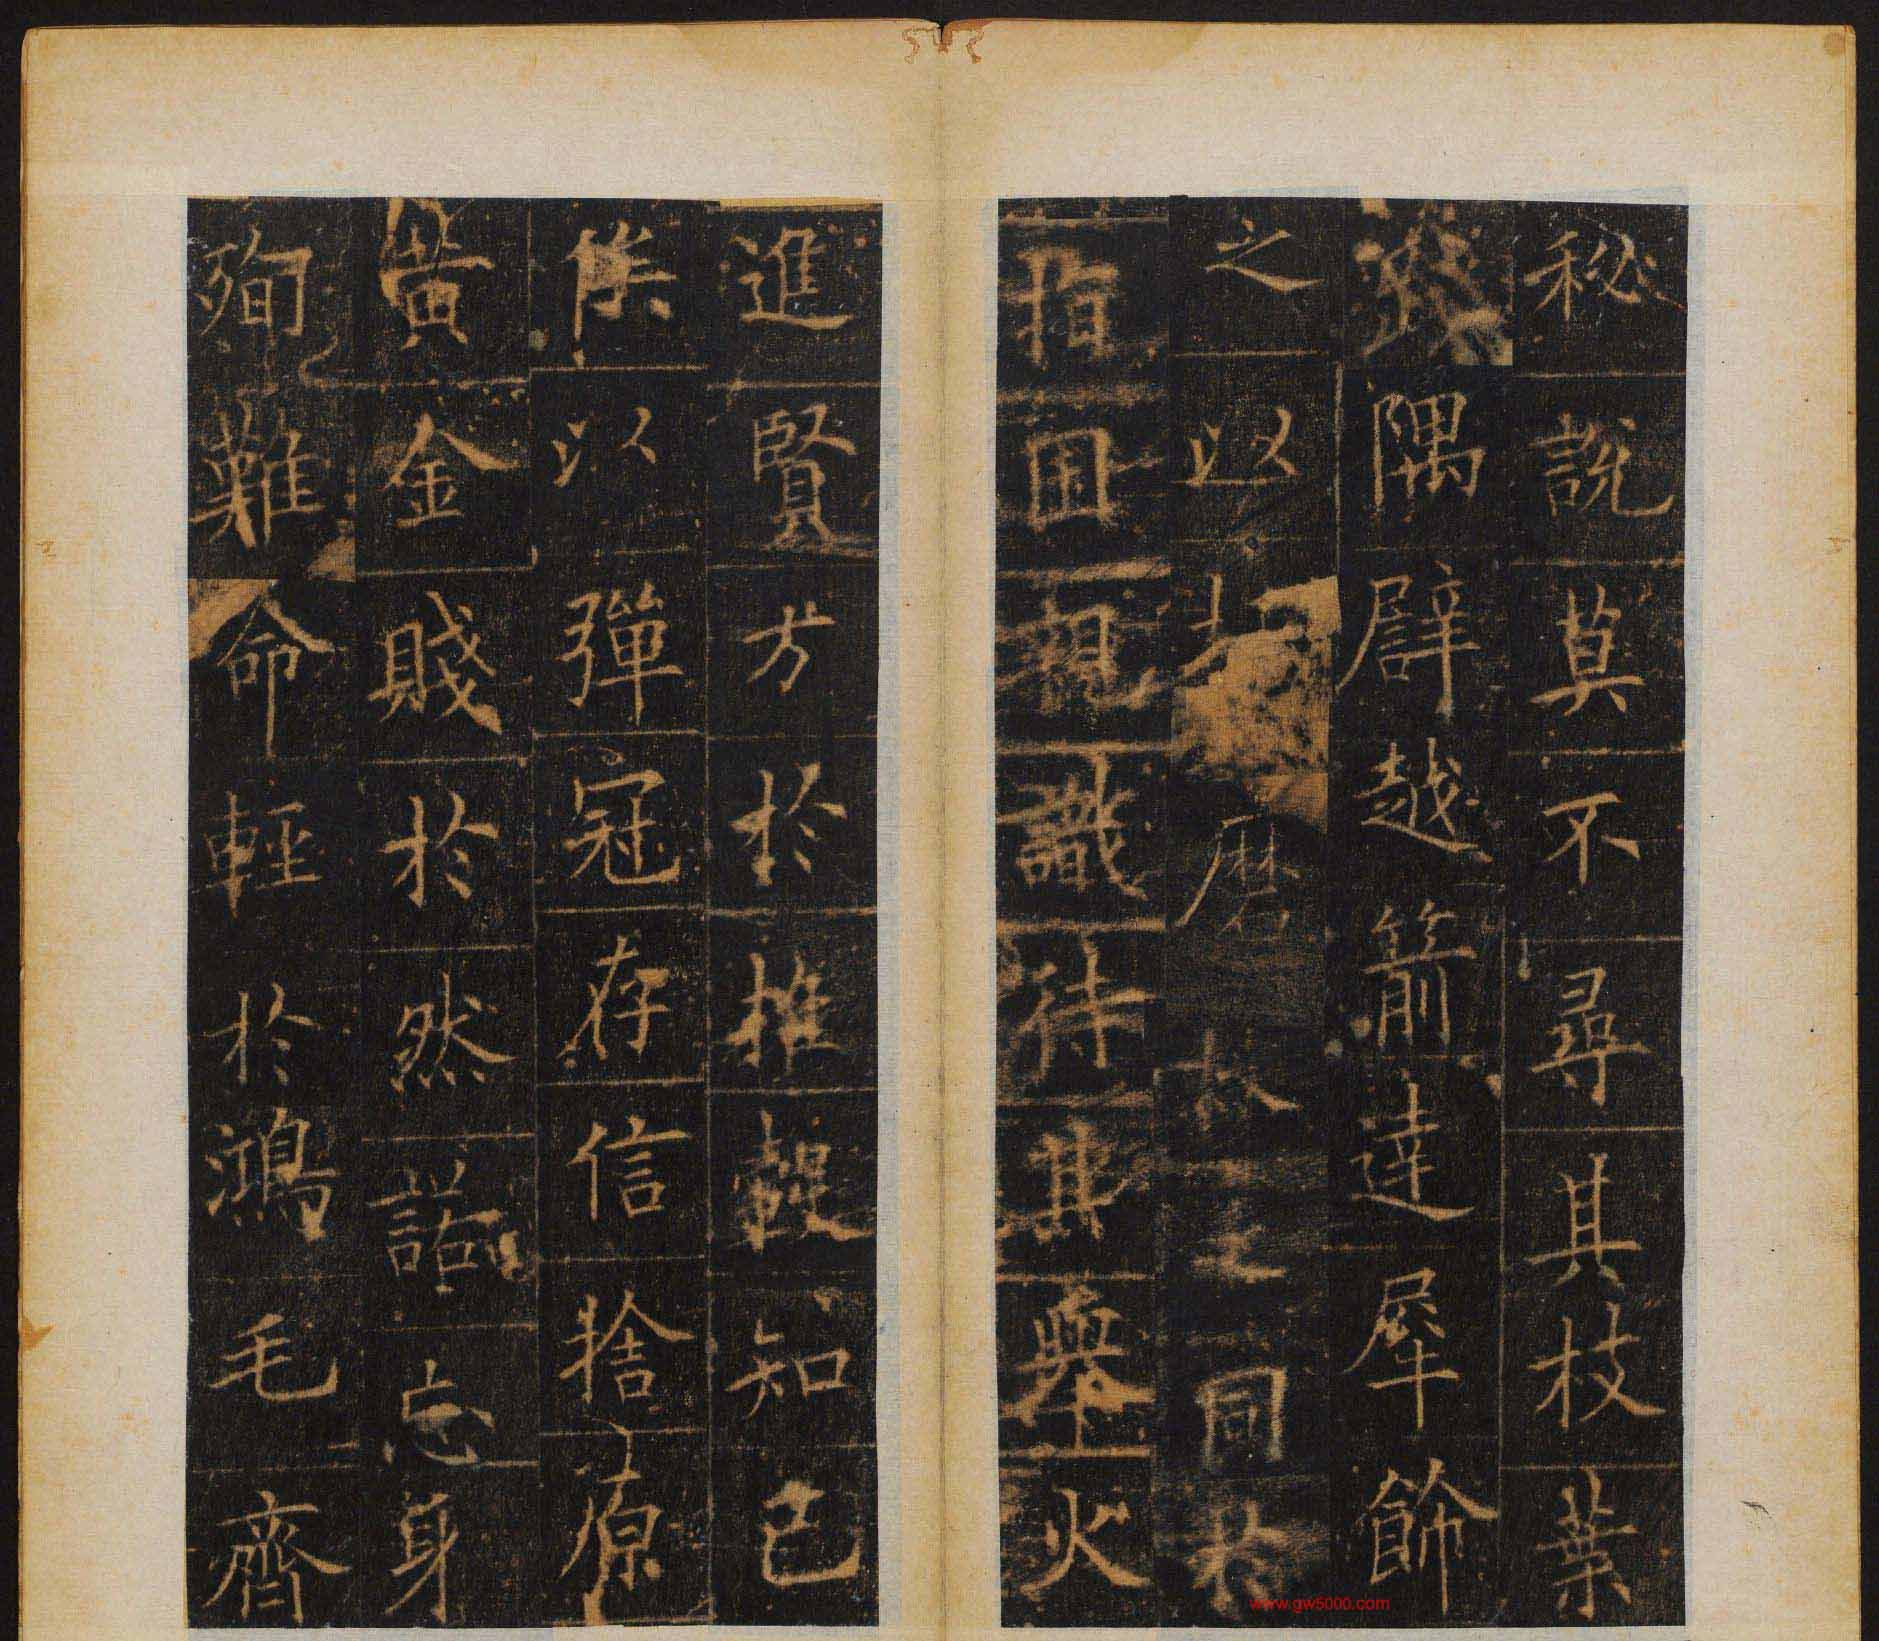 秘說莫不尋其枝葉
隅譬越箭達犀飾
之以括磨在同於
指囷親識待其舉火
進賢方於推轂知己
以彈冠存信捨原
黃金賤於然諾忘身
殉難命輕於鴻毛齊
www.gw5000.com